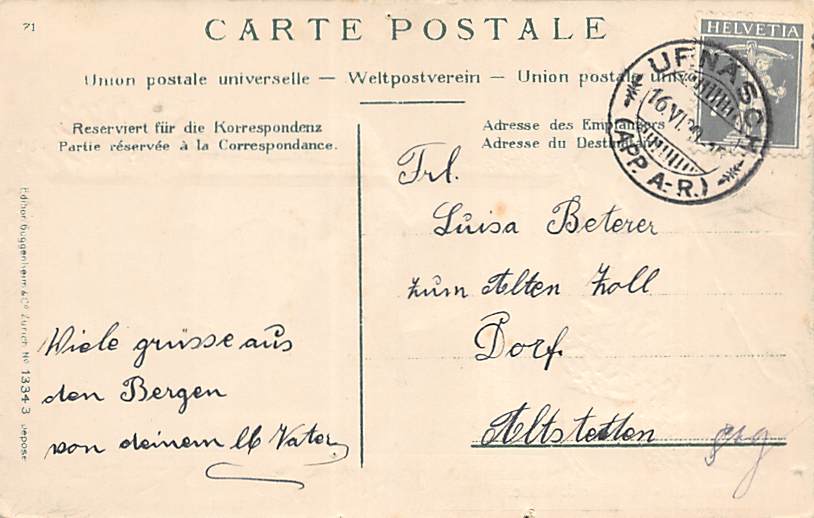 71
CARTE POSTALE
HELVETIA
Union postale universelle — Weltpostverein — Union postale
URNÄSCH
16.VI.
(APP. A.-R.)
Reserviert für die Korrespondenz
Partie réservée à la Correspondance.
Adresse des Empfängers
Adresse du Destinataire
Frl.
Luisa Beterer
zum Alten Zoll
Dorf
Altstetten
Viele grüsse aus
den Bergen
von deinem lb Vater
Editor Guggenheim & Co Zürich No 13343 Déposé